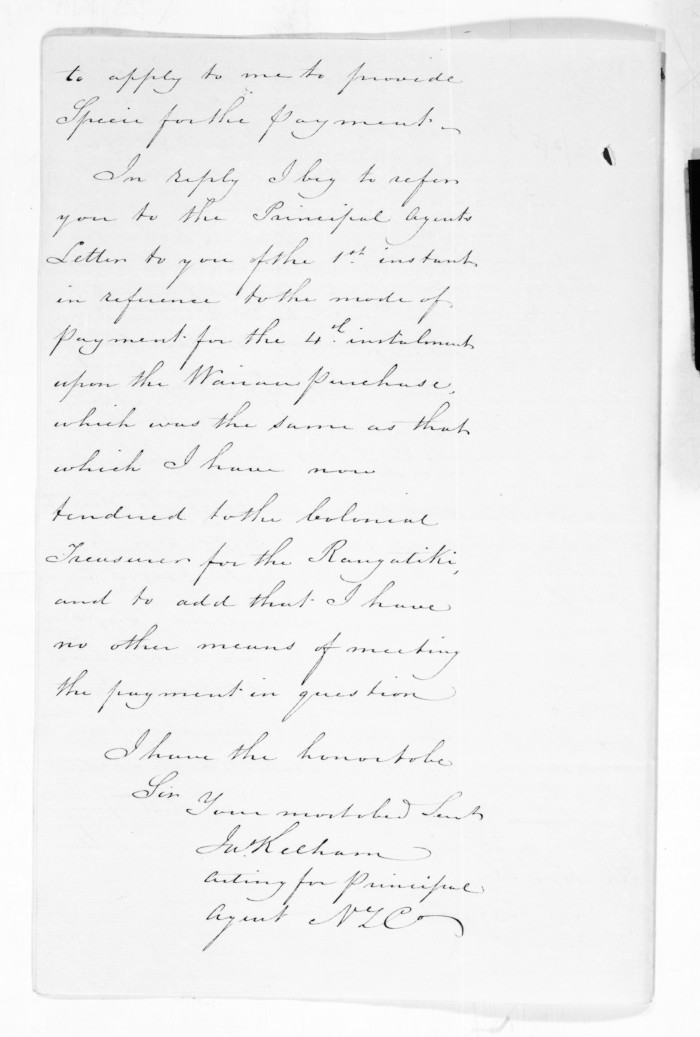 to apply to me to provide
Specie for the payment.
In reply I beg to refer
you to the Principal Agents
Letter to you of the 1st. instant
in reference to the mode of
payment for the 4th. instalment
upon the Wairau purchase,
which was the same as that
which I have now
tendered to the Colonial
Treasurer for the Rangatiki,
and to add that I have
no other means of meeting
the payment in question
I have the honor to be
Sir
Your most obed Servt
Jas. Kelham
Acting for Principal
Agent NZCo